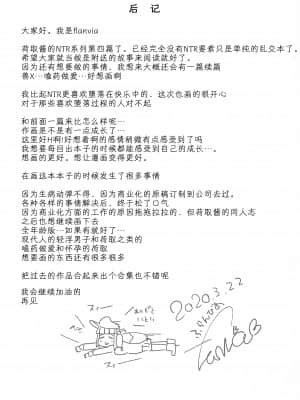 后 记
大家好。我是flanvia
荷取酱的NTR系列第四篇了。已经完全没有NTR要素只是单纯的乱交本了。
希望大家就当做是附送的故事来阅读就好了。
因为还有想要做的事情，我想来大概还会有一篇续篇
兽X…嗑药做爱…好想画啊
我比起NTR更喜欢堕落在快乐中的、这次也画的很开心
对于那些喜欢堕落过程的人对不起
和前面一篇来比怎么样呢…
作画是不是有一点成长了…
这里好H啊!好想看啊的感情稍微有点感受到了吗
我想要每目出本子的时候都能感受到自己的成长…。
想画的更好。想让漫画变得更好。
在画这本本子的时候发生了很多事情
因为生病动弹不得、因为商业化的原稿订制到公司去过。
各种各样的事情解决后、终于松了口气
因为商业化方面的工作的原因拖拖拉拉的、但荷取酱的同人志
之后也想继续画下去
全年龄版…如果有就好了…
现代人的轻浮男子和荷取之类的
嗑药做爱和怀孕的荷取
想要画的东西还有很多很多
把过去的作品合起来出个合集也不错呢
我会继续加油的
再见
2020.3.22